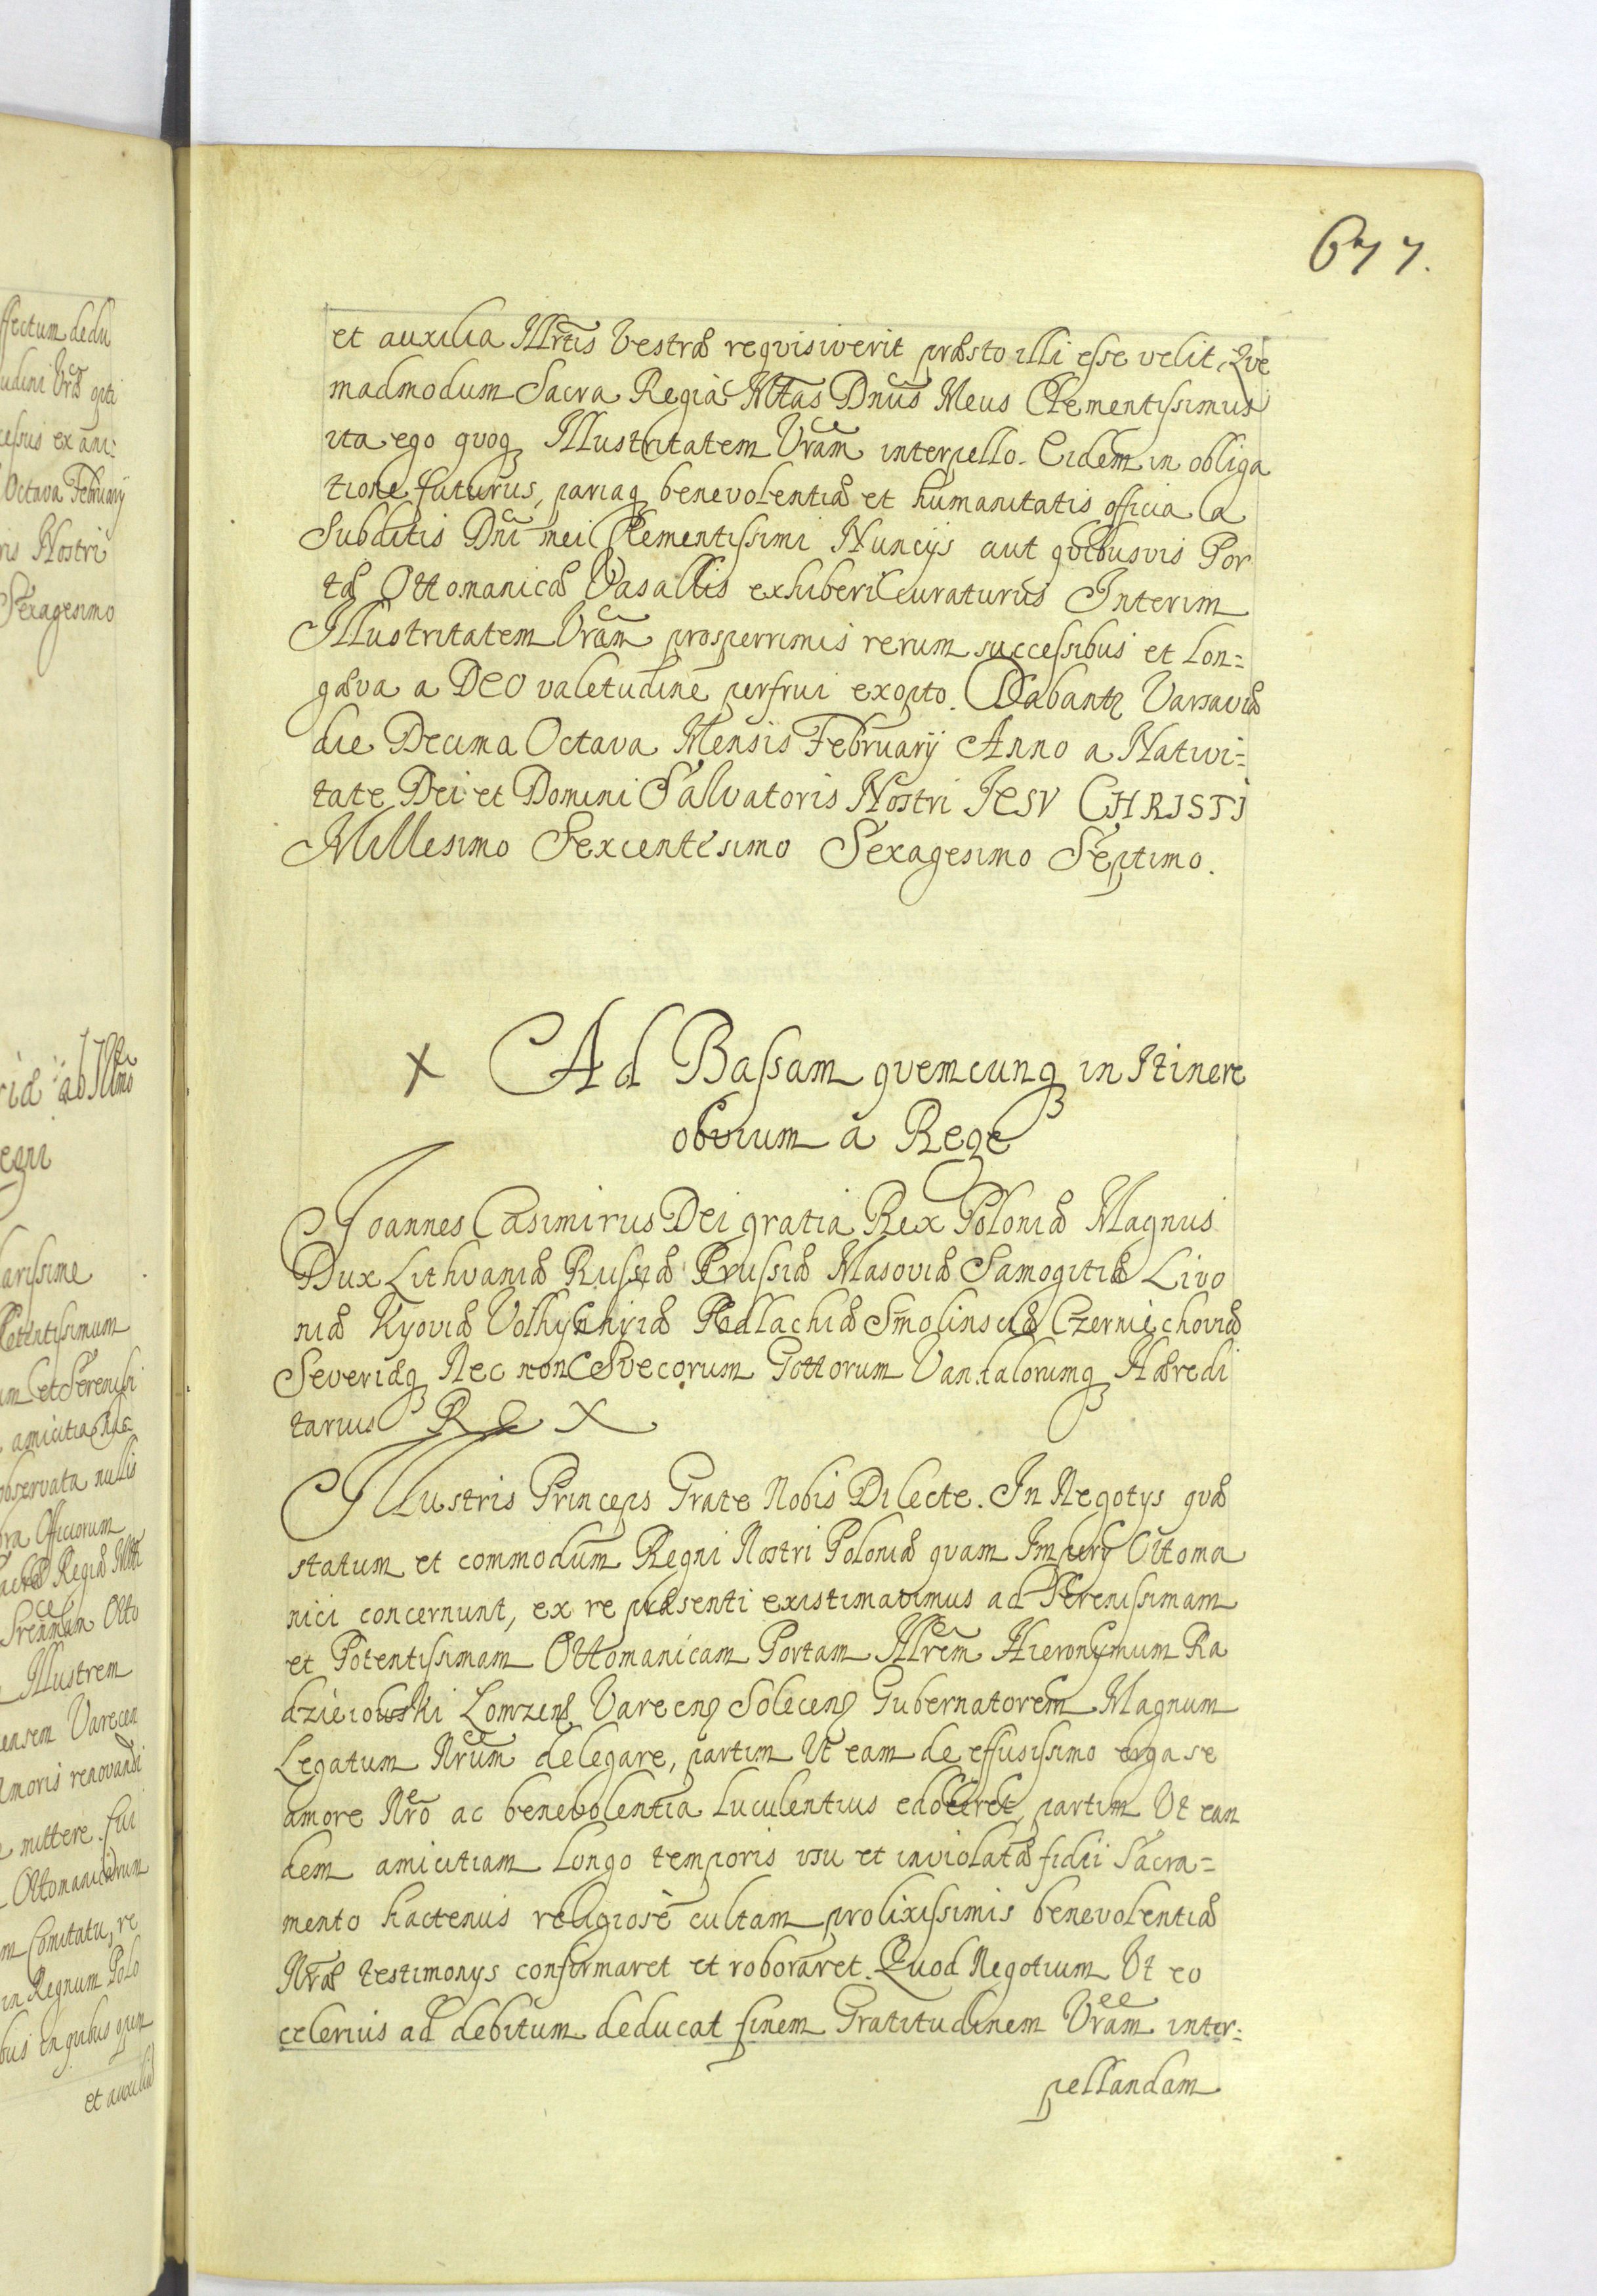 677.
et auxilia Illrtis Vestræ reqvisiverit præsto illi esse velit, Qve
madmodum Sacra Regia Mtas Dnus Meus Clementissimus
ita ego qvoq Illustritatem Vram interpello. Eidem in obliga
tione futurus, pariaq benevolentiæ et humanitatis officia a
Subditis Dni mei Clementissimi Nuncijs aut qvibusvis Por
tæ Ottomanicæ Vasallis exhiberi curaturus Interim
Illustritatem Vram prosperrimis rerum successibus et lon=
gæva a DEO valetudine perfrui exopto. Dabantr Varsaviæ
die Decima Octava Mensis February Anno a Nativi=
tate Dei et Domini Salvatoris Nostri JESV CHRISTI
Millesimo Sexcentesimo Sexagesimo Septimo.
x Ad Bassam qvemcunq in Itinere
obvium a Rege
Joannes Casimirus Dei gratia Rex Poloniæ Magnus
Dux Lithvaniæ Russiæ Prussiæ Masoviæ Samogitiæ Livo
niæ Kyoviæ Volhyniæ Podlachiæ Smolinsciæ Czerniechoviæ
Severiæq Nec non Svecorum Gottorum Vandalorumq Hæredi
tarius REX
Illustris Princeps Grate Nobis Dilecte. In Negotys qvæ
statum et commodum Regni Nostri Poloniæ qvam Impery Ottoma
nici concernunt, ex re præsenti existimavimus ad Serenissimam
et Potentissimam Ottomanicam Portam Illrem Hieronymum Ra
dzieiowski Lomzens Varecens Solecens Gubernatorem Magnum
Legatum Nrum delegare, partim Ut eam de effusissimo erga se
amore Nro ac benevolentia luculentius edoceret, partim Ut ean
dem amicitiam longo temporis usu et inviolatæ fidei Sacra=
mento hactenus religiosè cultam prolixissimis benevolentiæ
Nræ testimonys confirmaret et roboraret. Quod Negotium Ut eo
celerius ad debitum deducat finem Gratitudinem Vram inter=
pellandam